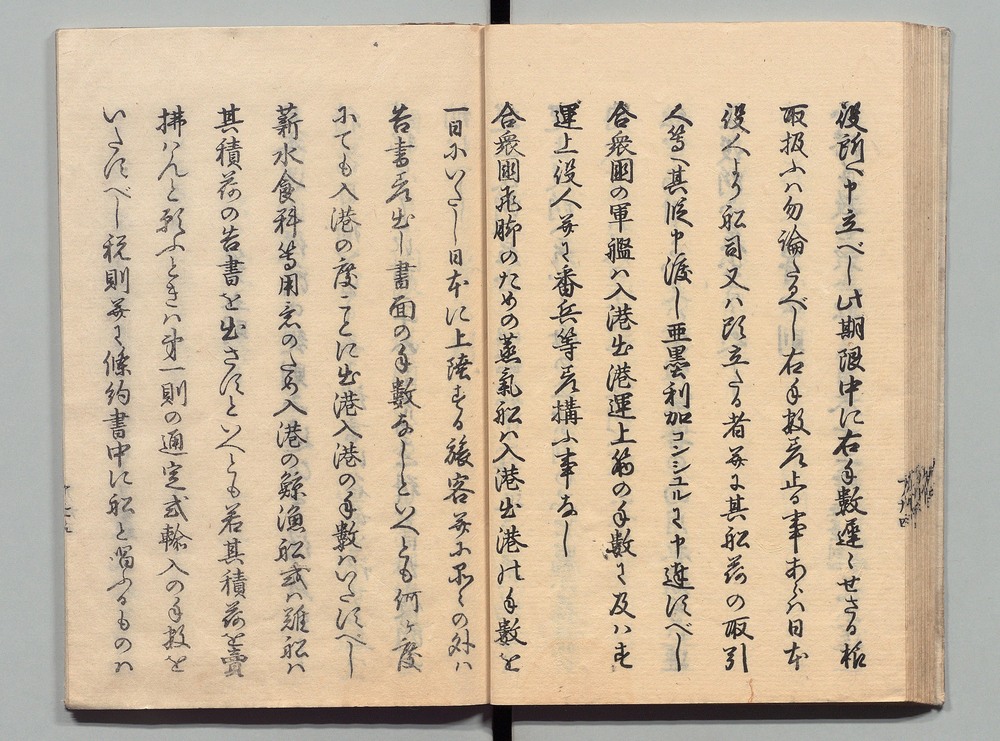 役所へ申立べし此期限中に右手数遅々せさる様
取扱ふハ勿論たるべし右手数差止る事あらハ日本
役人より船司又ハ頭立たる者并に其船荷の取引
人等へ其段申渡し亜墨利加コンシュルに申達すべし
合衆国の軍艦ハ入港出港運上所の手数に及ハす
運上役人并に番兵等差構ふ事なし
合衆国飛脚のための蒸氣船ハ入港出港の手数を
一日にいたし日本に上陸する旅客并に品々の外ハ
告書差出し書面の手数なしといへとも何ヶ度
にても入港の度ことに出港入港の手数ハいたすべし
薪水食料等用意のため入港の鯨漁船或ハ難船ハ
其積荷の告書を出さすといへとも若其積荷を賣
拂ハんと願ふときハ第一則の通定式輸入の手数を
いたすべし税則并に條約書中に船と唱ふるものハ